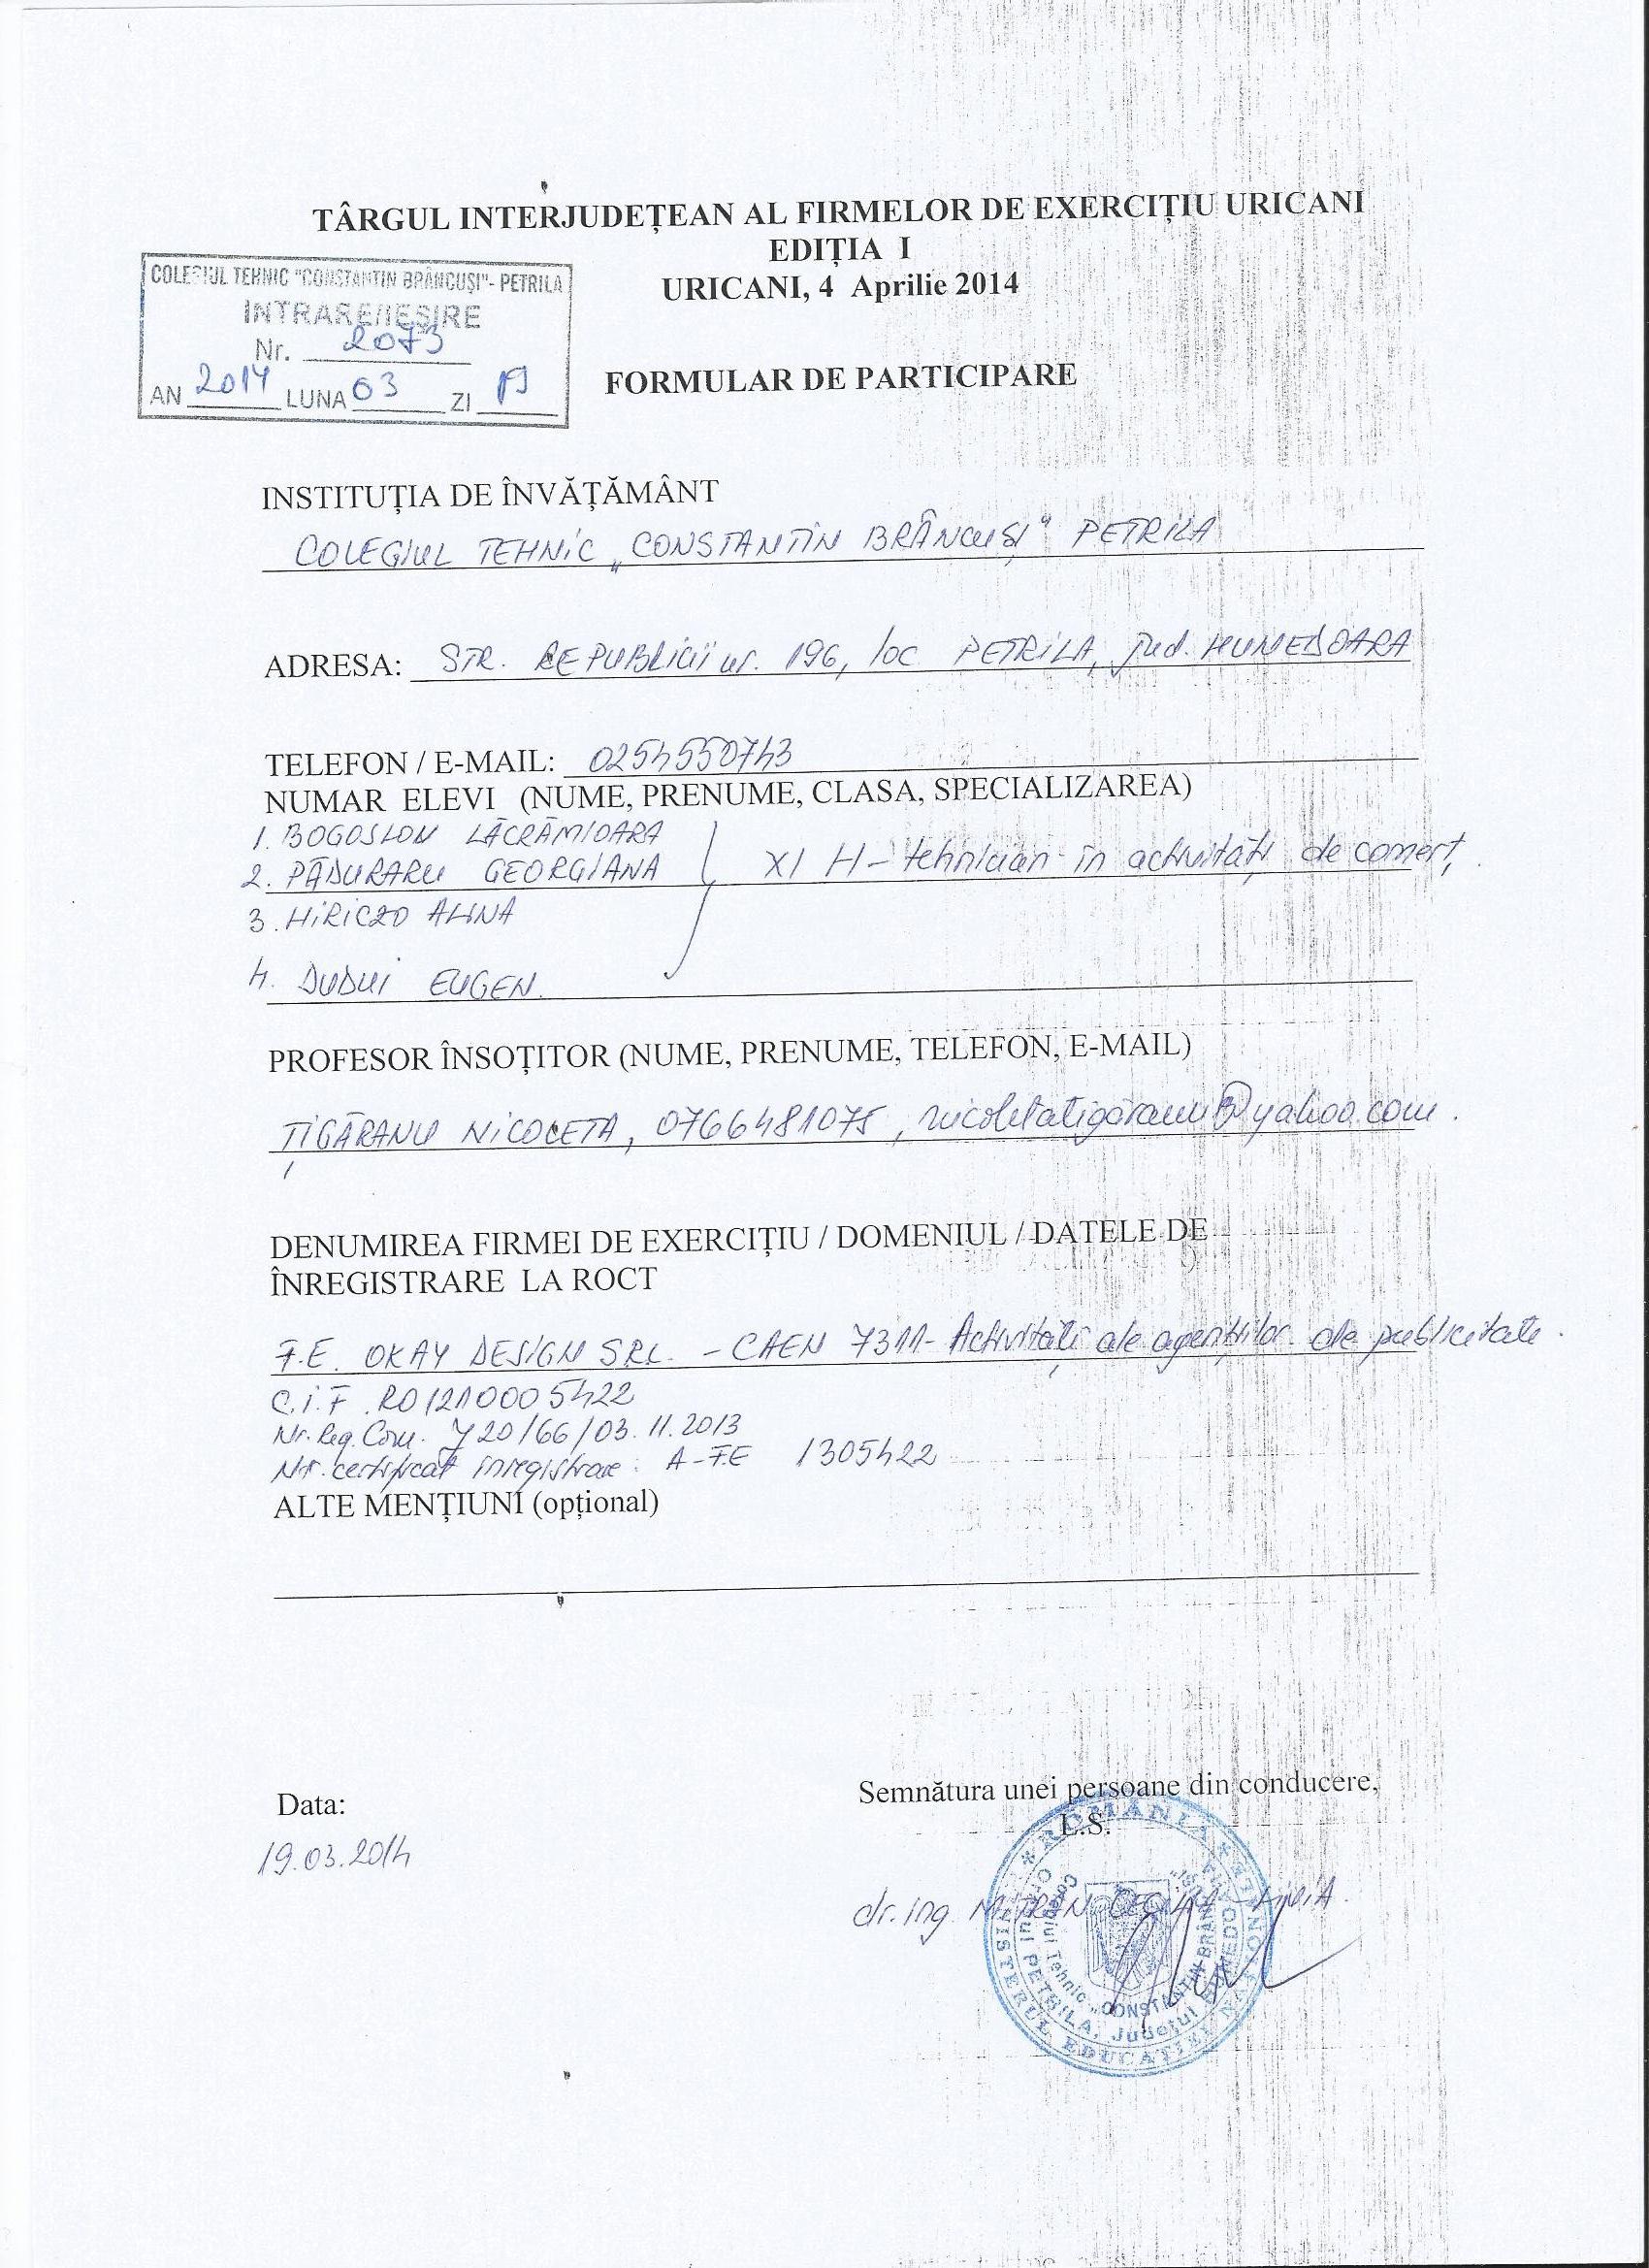 TÂRGUL INTERJUDEȚEAN AL FIRMELOR DE EXERCIȚIU URICANI
EDIȚIA I
URICANI, 4 Aprilie 2014
COLEGIUL TEHNIC "CONSTANTIN BRÂNCUȘI"- PETRILA
INTRARE/IEȘIRE
Nr. 2073
AN 2014 LUNA 03 ZI 19
FORMULAR DE PARTICIPARE
INSTITUȚIA DE ÎNVĂȚĂMÂNT
COLEGIUL TEHNIC „CONSTANTIN BRÂNCUȘI" PETRILA
ADRESA: STR. REPUBLICII nr. 196, loc PETRILA, jud. HUNEDOARA
TELEFON / E-MAIL: 0254550743
NUMAR ELEVI (NUME, PRENUME, CLASA, SPECIALIZAREA)
1. BOGOSLON LĂCRĂMIOARA
2. PĂDURARU GEORGIANA XI H - tehnician în activități de comerț
3. HIRICZO ALINA
4. DUDUI EUGEN.
PROFESOR ÎNSOȚITOR (NUME, PRENUME, TELEFON, E-MAIL)
ȚIGĂRANU NICOLETA, 0766481075, nicoletatigaranu@yahoo.com.
DENUMIREA FIRMEI DE EXERCIȚIU / DOMENIUL / DATELE DE
ÎNREGISTRARE LA ROCT
F.E. OKAY DESIGN SRL. - CAEN 7311- Activități ale agențiilor de publicitate.
C.i.F. RO1210005422
Nr. Reg. Com. J20/66/03.11.2013
Nr. certificat înregistrare: A-FE 1305422
ALTE MENȚIUNI (opțional)
Data:
19.03.2014
Semnătura unei persoane din conducere,
L.S.
dr. ing. MITRAN CECILIA - LIVIA.
ROMÂNIA * MINISTERUL EDUCAȚIEI NAȚIONALE *
Orașul PETRILA, Județul HUNEDOARA
Colegiul Tehnic „CONSTANTIN BRÂNCUȘI"